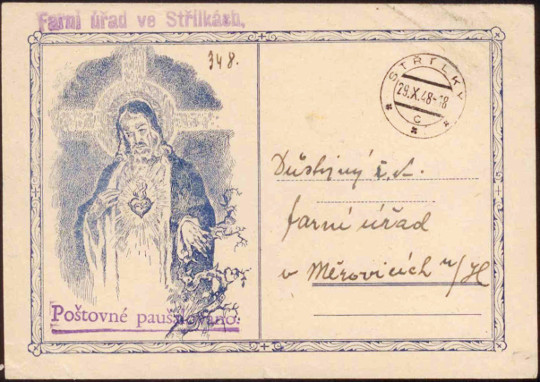 Farní úřad ve Střílkách,
348.
STŘÍLKY
29.X.48-18
C
Důstojný ř. k.
farní úřad
v Měrovicích n/H
Poštovné paušalováno.